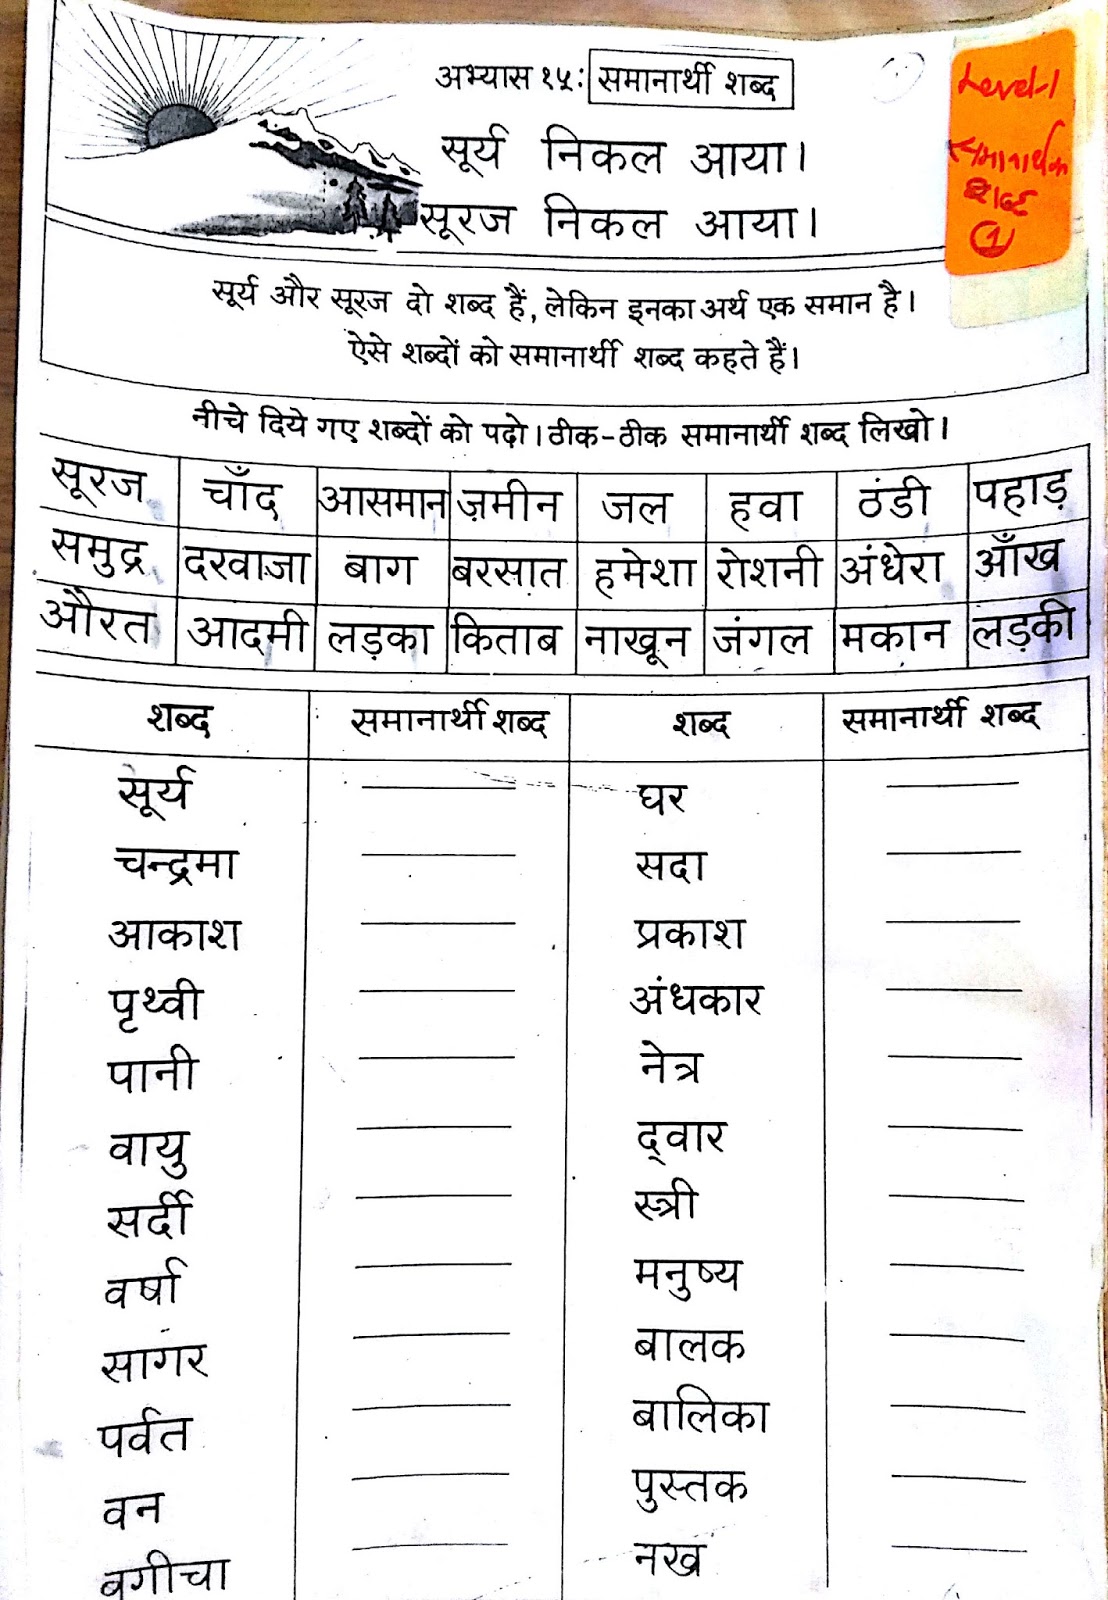 अभ्यास १५: समानार्थी शब्द
Level-1
समानार्थक
शब्द
1
सूर्य निकल आया।
सूरज निकल आया।
सूर्य और सूरज दो शब्द हैं, लेकिन इनका अर्थ एक समान है।
ऐसे शब्दों को समानार्थी शब्द कहते हैं।
नीचे दिये गए शब्दों को पढ़ो। ठीक-ठीक समानार्थी शब्द लिखो।
सूरज चाँद आसमान ज़मीन जल हवा ठंडी पहाड़
समुद्र दरवाजा बाग बरसात हमेशा रोशनी अंधेरा आँख
औरत आदमी लड़का किताब नाखून जंगल मकान लड़की
शब्द समानार्थी शब्द शब्द समानार्थी शब्द
सूर्य घर
चन्द्रमा सदा
आकाश प्रकाश
पृथ्वी अंधकार
पानी नेत्र
वायु द्‌वार
सर्दी स्त्री
वर्षा मनुष्य
सागर बालक
पर्वत बालिका
वन पुस्तक
बगीचा नख